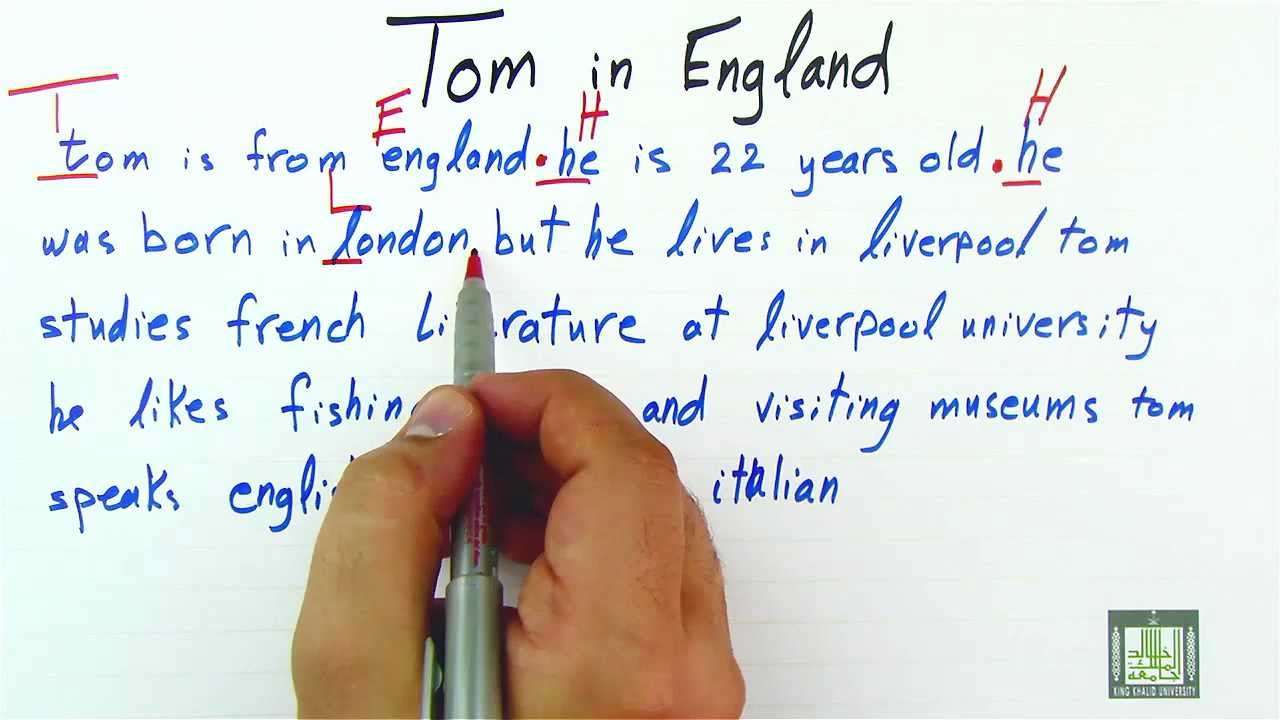 Tom in England
T E H H
tom is from england. he is 22 years old. he
L
was born in london, but he lives in liverpool tom
studies french literature at liverpool university
he likes fishing and visiting museums tom
speaks italian
جامعة الملك خالد
KING KHALID UNIVERSITY